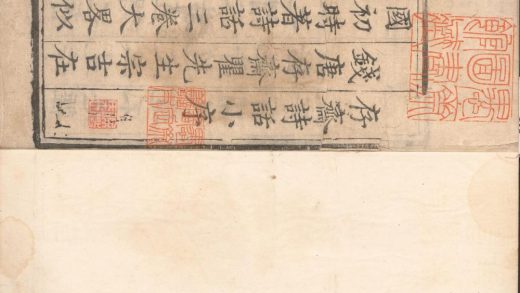 存齋詩話小序
錢唐存齋瞿先生宗吉在
國初時著詩話三卷大畧似